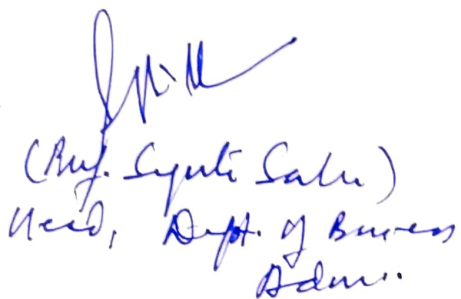 (Prof. Sahu)
Head, Dept. of Business
Admn.